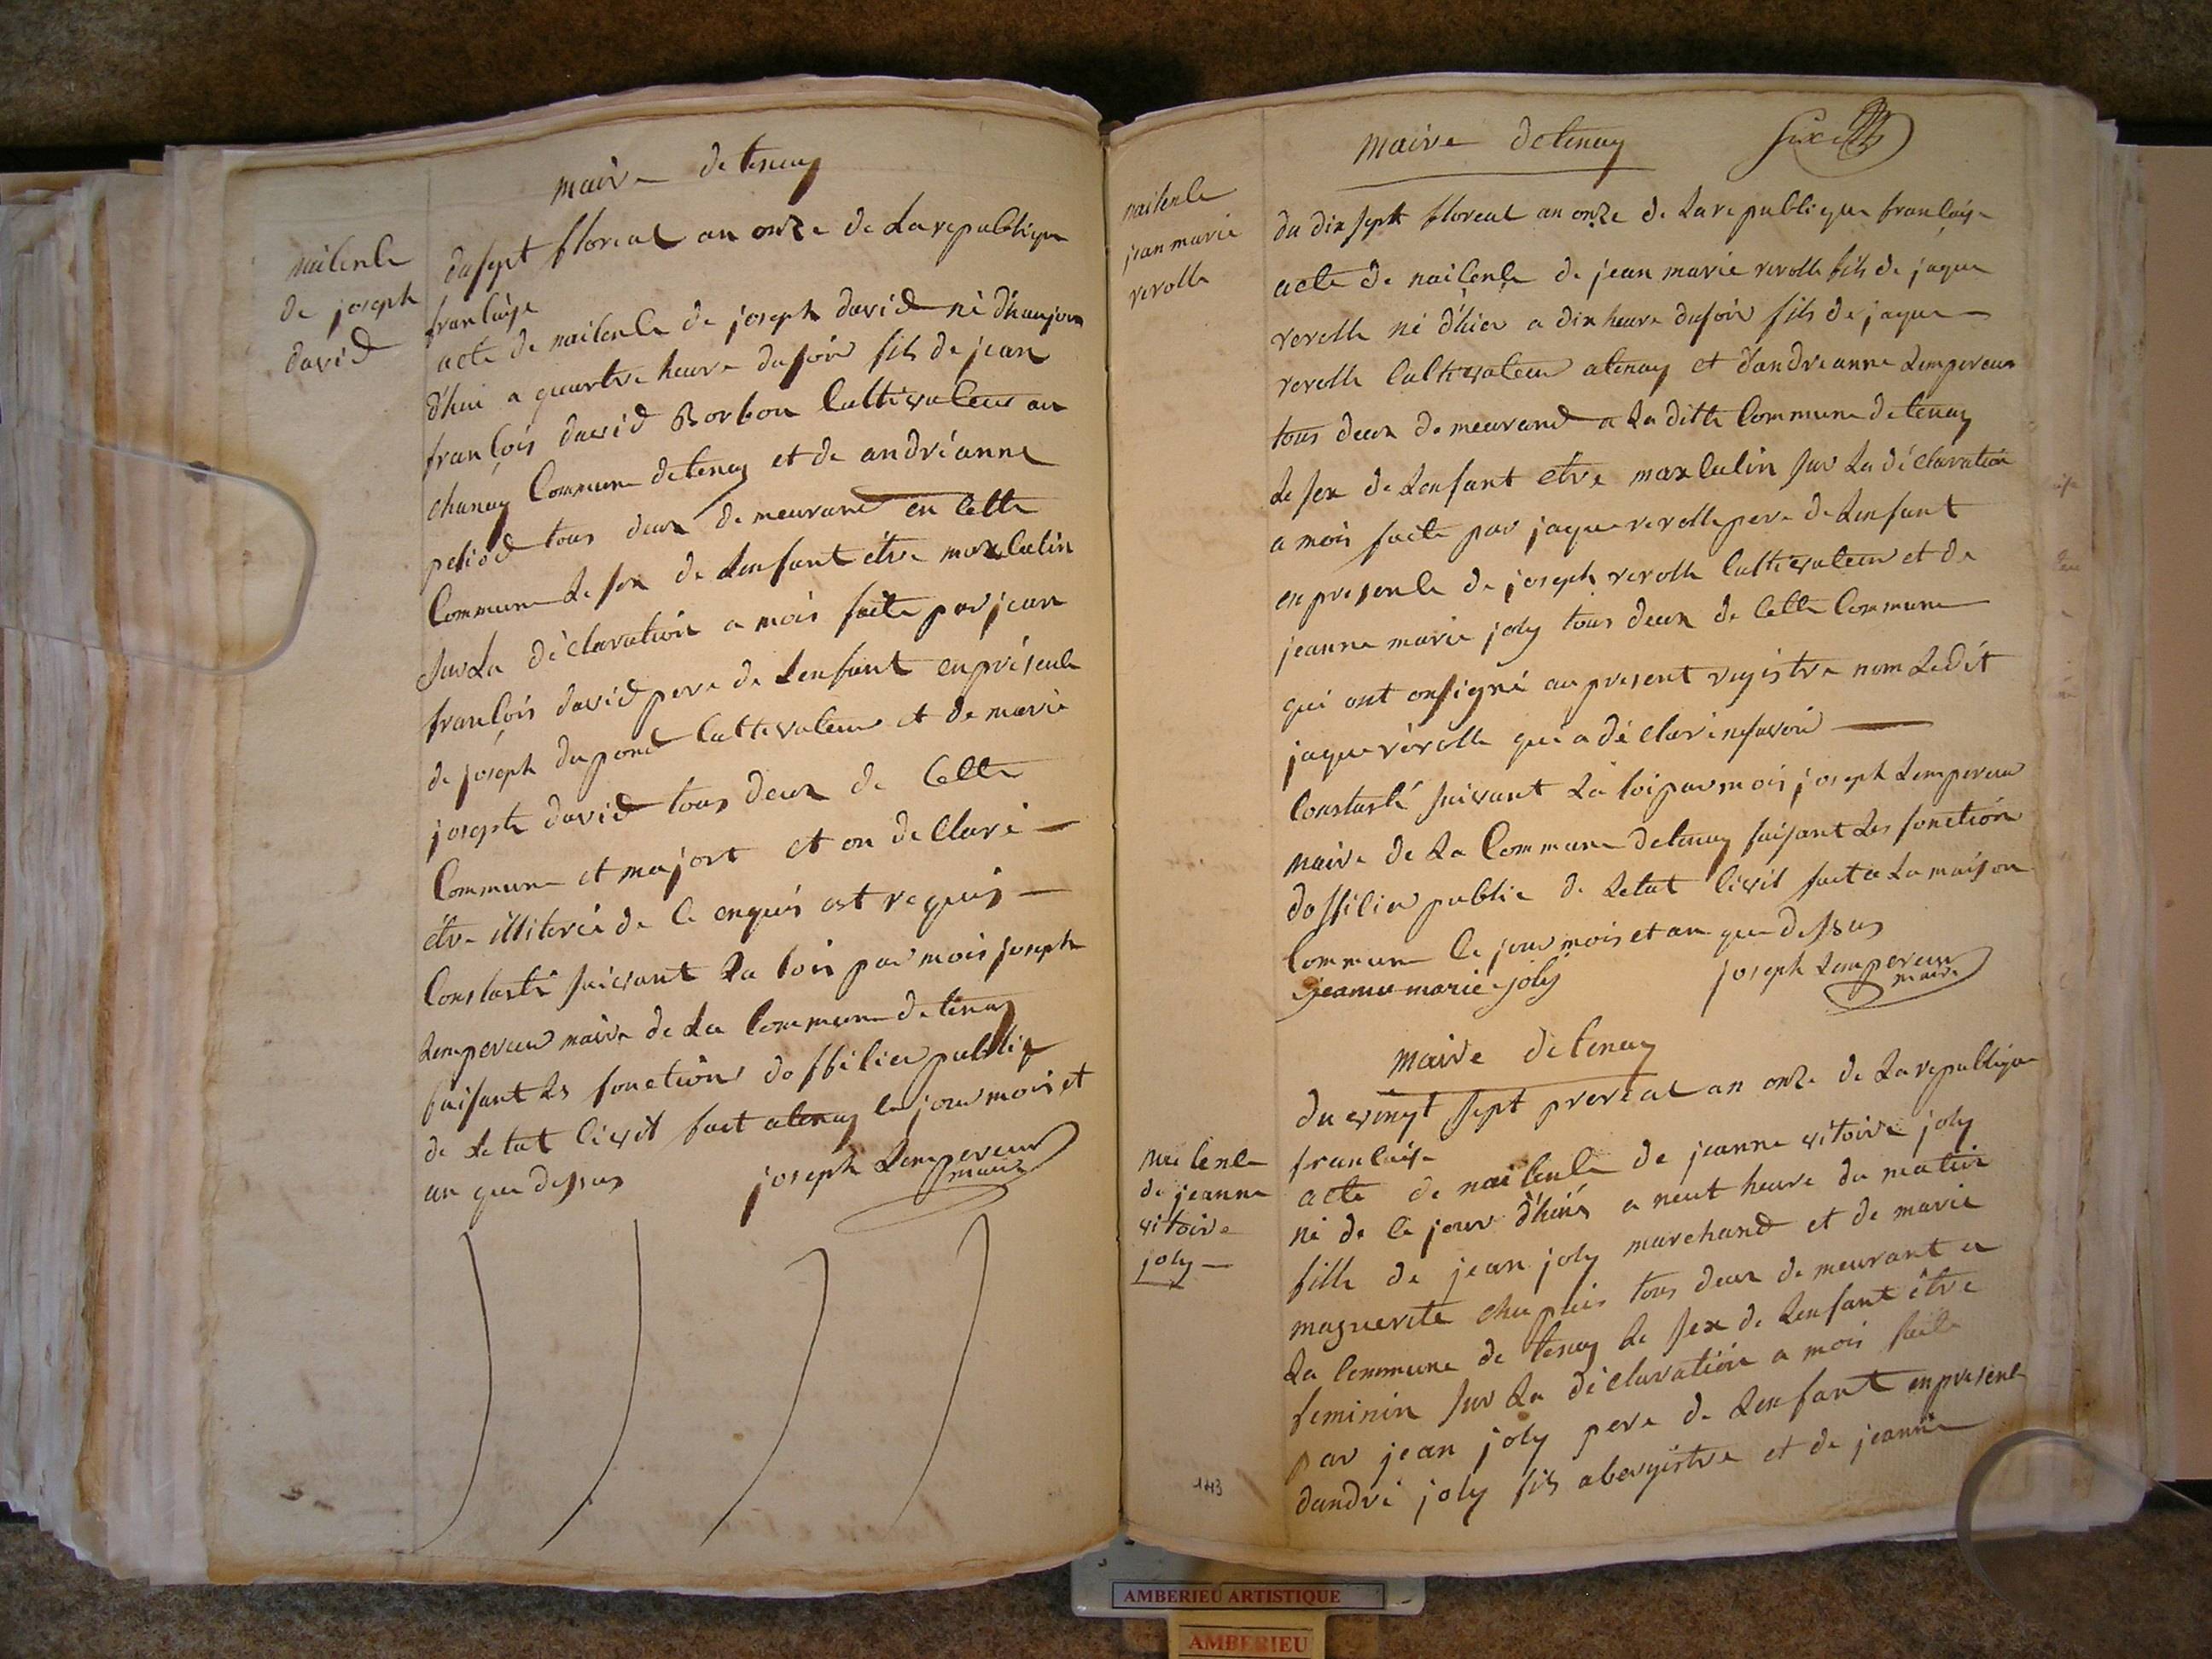 maire de tenay
naisence
de joseph
david
du sept floreal an onze de la republique
francaise
acte de naisence de joseph david né d'haujour
d'hui a quartre heure du soir fils de jean
françois david Borbon cultivateur au
chanay Commune de tenay et de andréanne
peliod tous deux demeurand en cette
Commune le sex de Lenfant étre masculin
sur La déclaration a moi faite par jean
françois david pere de Lenfant en présence
de joseph dupond cultivateur et de marie
josepte david tous deux de cette
Commune et majort et on declaré
étre illiteré de ce enquis ast requis
Constasté suivant La loix par mois joseph
Lempereur maire de La Commune de tenay
faisant Les fonctions dofficier publiq
de Letat civil fait a tenay les jour mois et
an que dessus joseph Lempereur
maire
maire de tenay
naisence
jean marie
revolle
du dix sept floreal an onze de La republique française
acte de naisence de jean marie revolle fils de jaque
revolle né d'hier a dix heure du soir fils de jaque
revolle cultivateur a tenay et d'andreanne Lempereur
tous deux demeurand a La ditte Commune de tenay
Le sex de Lenfant etre masculin sur La déclaration
a moi faite par jaque revolle pere de Lenfant
en presence de joseph revolle cultivateur et de
jeanne marie joly tous deux de cette Commune
qui ont onsigné au present registre nom Ledit
jaque révolle qui a déclaré nesavoir
Constasté suivant La loi par mois joseph Lempereur
maire de La Commune de tenay faisant Les fonction
dofficier public de Letat civil fait a La maison
Commune le jour mois et an que dessus
jeanne marie joly joseph Lempereur
maire
maire de tenay
naisence
de jeanne
vitoire
joly
du vingt sept prereal an onze de La republique
francaise
acte de naisence de jeanne vitoire joly
né de ce jour d'hui a neut heure du matin
fille de jean joly marchand et de marie
maguerite chapuis tous deux demeurant a
La commune de tenay Le sex de Lenfant étre
feminin sur La déclaration a mois faite
par jean joly pere de Lenfant en presence
dandré joly fils abergistre et de jeanne
143
AMBERIEU ARTISTIQUE
AMBERIEU